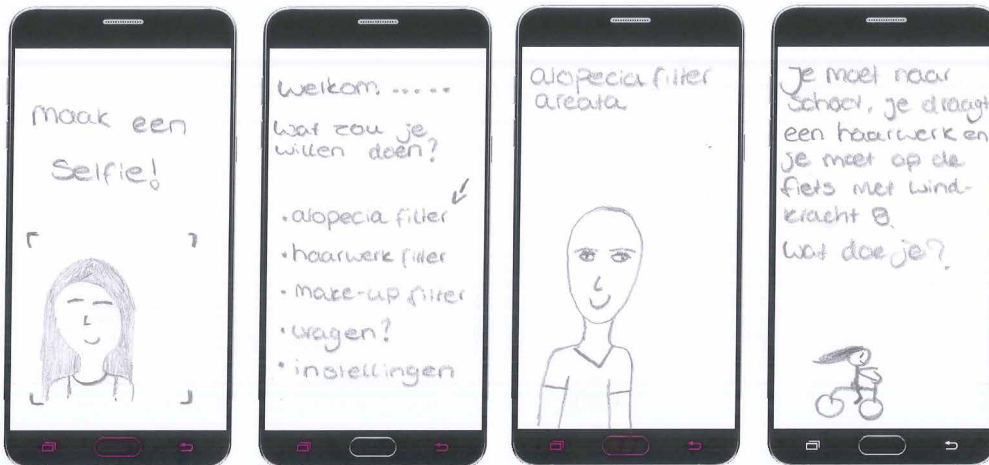 maak een
Selfie!
welkom.....
wat zou je
willen doen?
• alopecia filter
• haarwerk filter
• make-up filter
• vragen?
• instellingen
alopecia filter
areata
Je moet naar
school, je draagt
een haarwerk en
je moet op de
fiets met wind-
kracht 8.
Wat doe je?